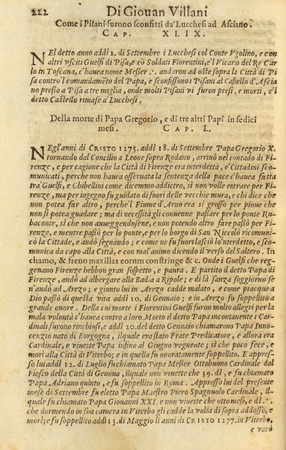 222 Di Giouan Villani
Come i Pisani furono sconfitti da' Lucchesi ad Asciano.
CAP. XLIX.
Nel detto anno addì 2. di Settembre i Lucchesi col Conte Vgolino, e con
altri vsciti Guelfi di Pisa, e cò Soldati Fiorentini, e'l Vicario del Re Car
lo in Toscana, c'hauea nome Messer . . andaron ad oste sopra la Città di Pi
sa contro l'comandamento del Papa, e sconfissono i Pisani al Castello d'Ascia
no presso a Pisa a tre miglia, onde molti Pisani vi furon presi, e morti, e'l
detto Castello rimase a' Lucchesi.
Della morte di Papa Gregorio, e di tre altri Papi in sedici
mesi. CAP. L.
Negl'anni di CRISTO 1275. addì 18. di Settembre Papa Gregorio X.
tornando dal Concilio a Leone sopra Rodano, arriuò nel contado di Fi-
renze, e per cagione che la Città di Firenze era interdetta, e' Cittadini sco-
municati, perche non hauea osseruata la sentenza della pace c'hauea fatta
tra Guelfi, e Ghibellini come dicemmo addietro, il non volle entrare per Fi-
renze, ma per ingegno fu guidato di fuori delle vecchie mura, e chi dice che
non potea far altro, perche'l Fiume d'Arno era si grosso per pioue che
non si potea guadare; ma di necessità gli conuenne passare per lo ponte Ruba-
conte, si che non auueggendosene, e non potendo altro fare passò per Fi-
renze, e mentre passò per lo ponte, e per lo borgo di San Niccolò ricomuni-
cò la Cittade, e andò segnando; e come ne fu fuori lasciò lo'nterdetto, e sco-
municò da capo alla Città, e con mal'animo dicendo il verso del Saltero. In
chamo, & freno maxillas eorum constringe & c. Onde i Guelfi che reg-
geuano Firenze hebbono gran sospetto, e paura. E partito il detto Papa di
Firenze, andò ad albergare alla Badia a Ripole; e di là sanza soggiorno se
n'andò ad Arezo; e giunto lui ad Arezo cadde malato, e come piacque a
Dio passò di questa vita addì 10. di Gennaio; e in Arezo fu soppellito a
grande onore. Della cui morte i Fiorentini Guelfi furon molto allegri per la
mala volontà c'hauea contro a loro. Morto il detto Papa incontanente i Car-
dinali furono rinchiusi, e addì 20. del detto Gennaio chiamarono Papa Inno-
cenzio nato di Borgogna, ilquale era stato Frate Predicatore, e allora era
Cardinale, e viuette Papa insino al Giugno vegnente; si che poco fece, e
morì alla Città di Viterbo; e in quella fu onoratamente soppellito. E appres-
so lui addì 12. di Luglio fu chiamato Papa Messer Ottobuono Cardinale del
Fiesco della Città di Genoua, ilquale non viuette che 39. dì, e fu chiamato
Papa Adriano quinto, e fu soppellito in Roma. Appresso lui del presente
mese di Settembre fu eletto Papa Maestro Piero Spagnuolo Cardinale, il-
quale fu chiamato Papa Giouanni XXI. e non viuette che ottomesi, e dì . .
che dormendo in sua camera in Viterbo gli cadde la volta di sopra addosso, e
morì; e fu soppellito addì 15. di Maggio li anni di CRISTO 1277. in Viterbo,
e vacò